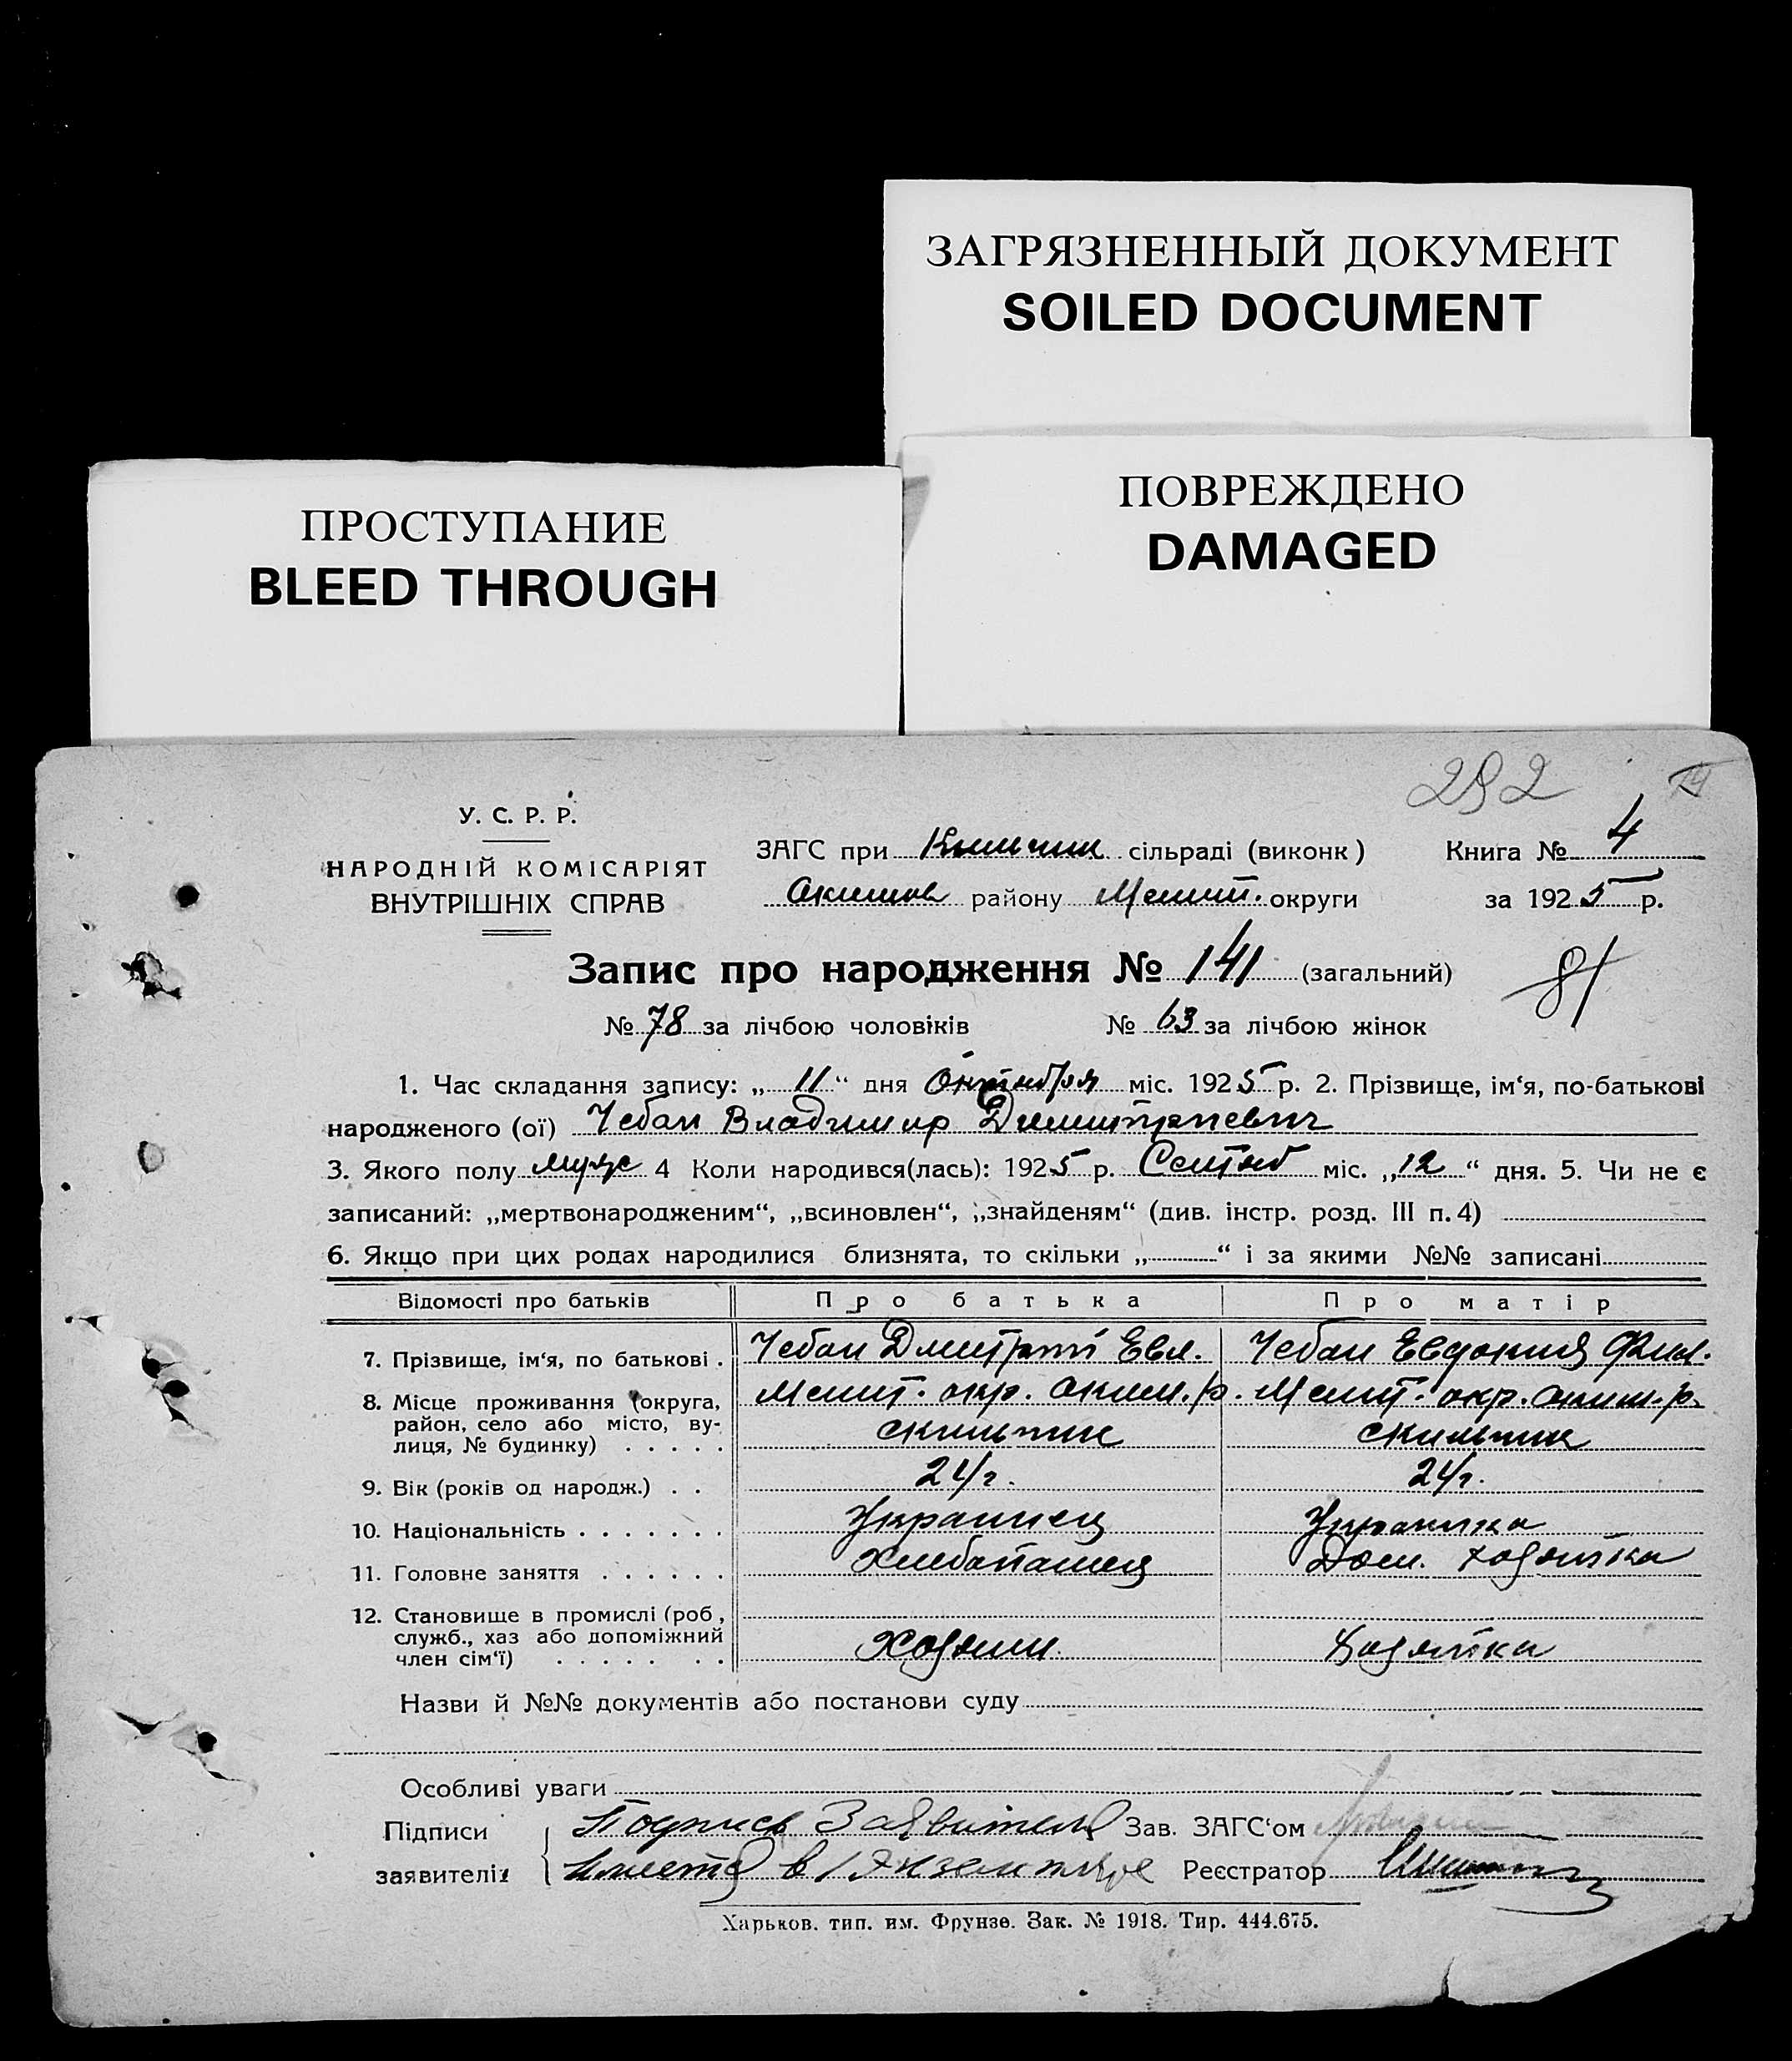 ЗАГРЯЗНЕННЫЙ ДОКУМЕНТ
SOILED DOCUMENT
ПРОСТУПАНИЕ
BLEED THROUGH
ПОВРЕЖДЕНО
DAMAGED
292
У. С. Р. Р.
НАРОДНІЙ КОМІСАРІЯТ
ВНУТРІШНІХ СПРАВ
ЗАГС при Кильчик сільраді (виконк) Книга № 4
Акимов району Мелит. округи за 1925 р.
Запис про народження № 141 (загальний)
81
№ 78 за лічбою чоловіків № 63 за лічбою жінок
1. Час складання запису: „ 11 “ дня Октября міс. 1925 р. 2. Прізвище, ім‘я, по-батькові
народженого (ої) Чебан Владимир Димитриевич
3. Якого полу муже 4 Коли народився(лась): 1925 р. Сентяб міс. „12“ дня. 5. Чи не є
записаний: „мертвонародженим“, „всиновлен“, „знайденям“ (див. інстр. розд. III п. 4)
6. Якщо при цих родах народилися близнята, то скільки „ “ і за якими №№ записані
Відомості про батьків Про батька Про матір
7. Прізвище, ім‘я, по батькові . Чебан Дмитрий Евл. Чебан Евдокия Фил.
8. Місце проживання (округа, Мелит. окр. Аким. р. Мелит. окр. Аким. р.
район, село або місто, ву-
лиця, № будинку) . . . . . с Кильчик с Кильчик
9. Вік (років од народж.) . . 24 г. 24 г.
10. Національність . . . . . . . Украинец Украинка
11. Головне заняття . . . . . . Хлебопашец Дом. хозяйка
12. Становище в промислі (роб,
служб., хаз або допоміжний
член сім‘ї) . . . . . . . Хозяин Хозяйка
Назви й №№ документів або постанови суду
Особливі уваги
Підписи Подпись Заявителя Зав. ЗАГС‘ом
заявителів имется в 1 экземпляре Реєстратор
Харьков. тип. им. Фрунзе. Зак. № 1918. Тир. 444.675.